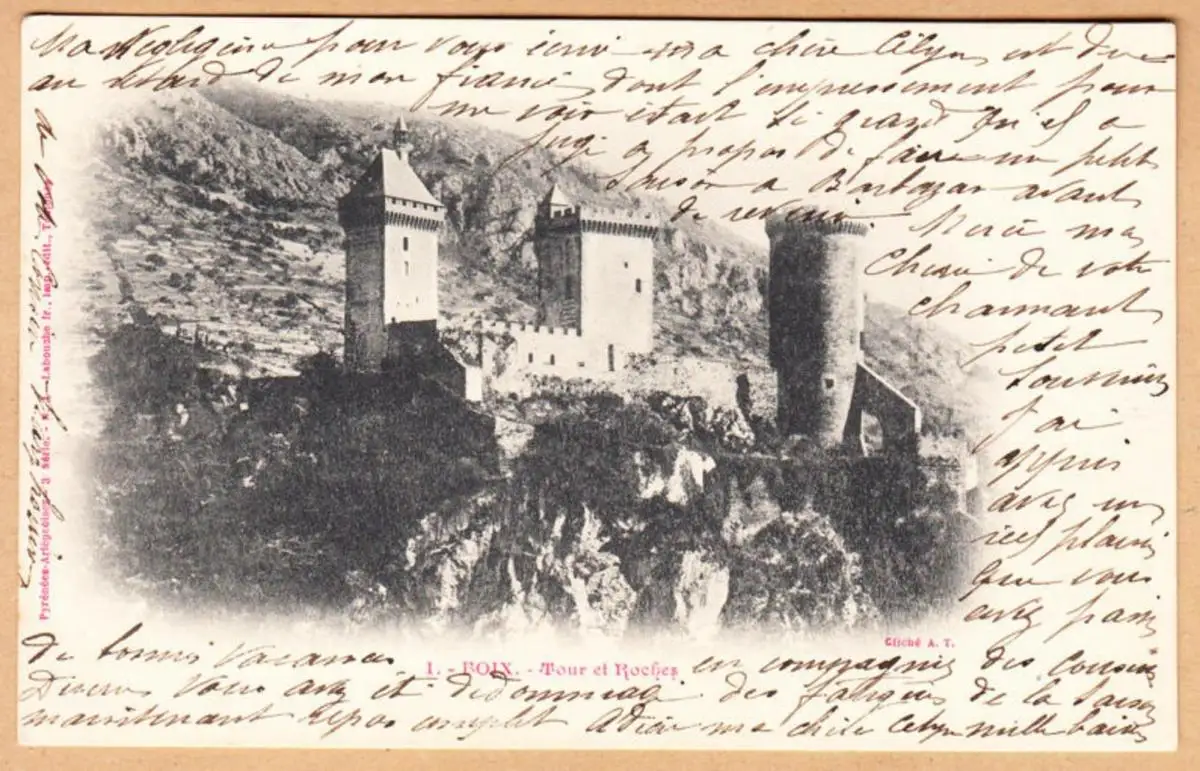 Ma Négligence pour vous écrire ma chère Célyne est due
au retard de mon fiancé dont l'empressement pour
me voir était si grand qu'il a
jugé a propos de faire un petit
saison a Barbazan avant
de revenir
Merci ma
Chérie de votre
charmant
petit
Souvenir
J'ai
appris
avec un
réel plaisir
que vous
avez passé
de bonnes vacances en compagnie des Cousins
Divers Vous avez été dédommagé des fatigues de la Saison
maintenant repos complet Adieu ma chère Célyne mille baisers
1. - FOIX. - Tour et Rochers
Cliché A. T.
Pyrénées-Ariégeoises 3e Série. - Labouche fr. imp. édit., Toulouse